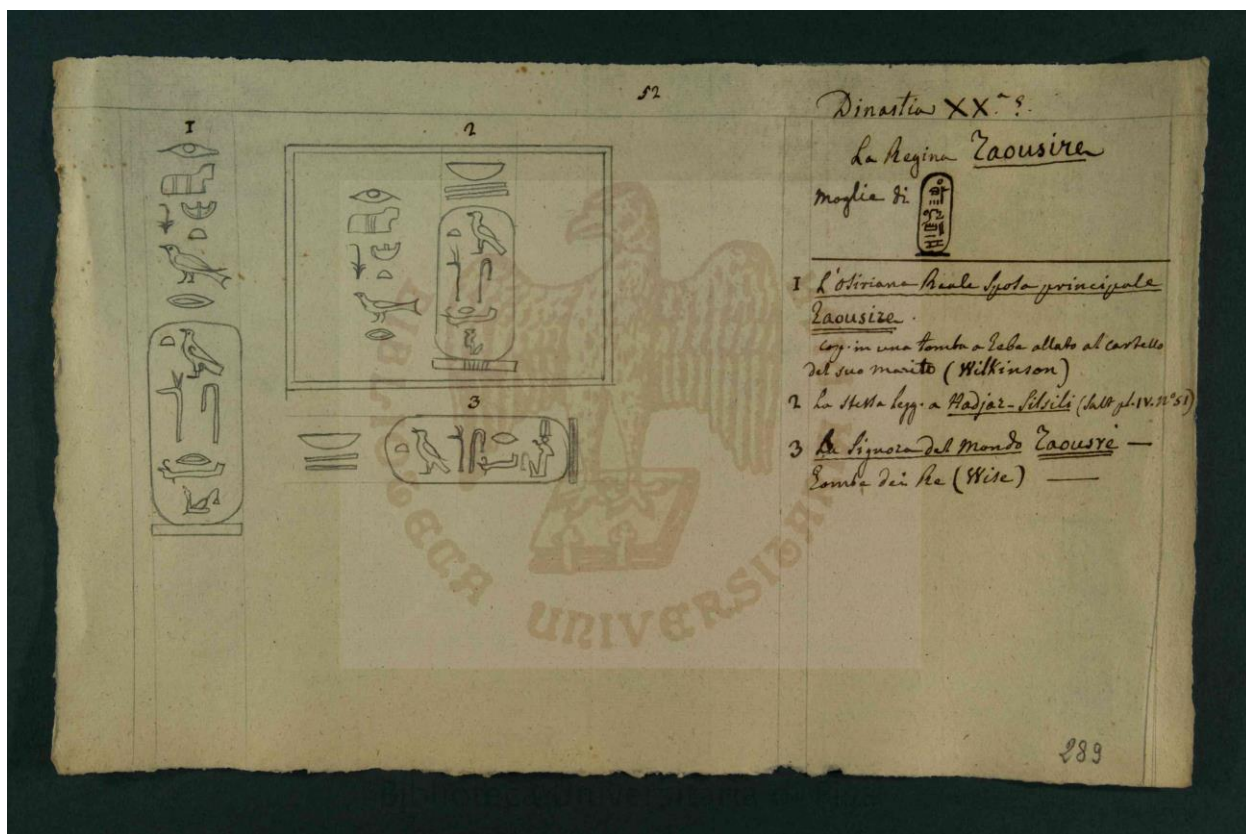 52
Dinastia XX.ª ?.
La Regina Taousire
moglie di
1 L'Osiriana Reale Sposa principale
Taousire.
cog. in una tomba a Tebe allato al cartello
del suo marito (Wilkinson)
2 La stessa legg. a Hadjar-Silsili (Salt pl. IV. n° 51)
3 La Signora del Mondo Taousré —
Tombe dei Re (Wise) —
1
2
3
289
BIBLIOTECA UNIVERSITARIA
Biblioteca Universitaria di Pisa